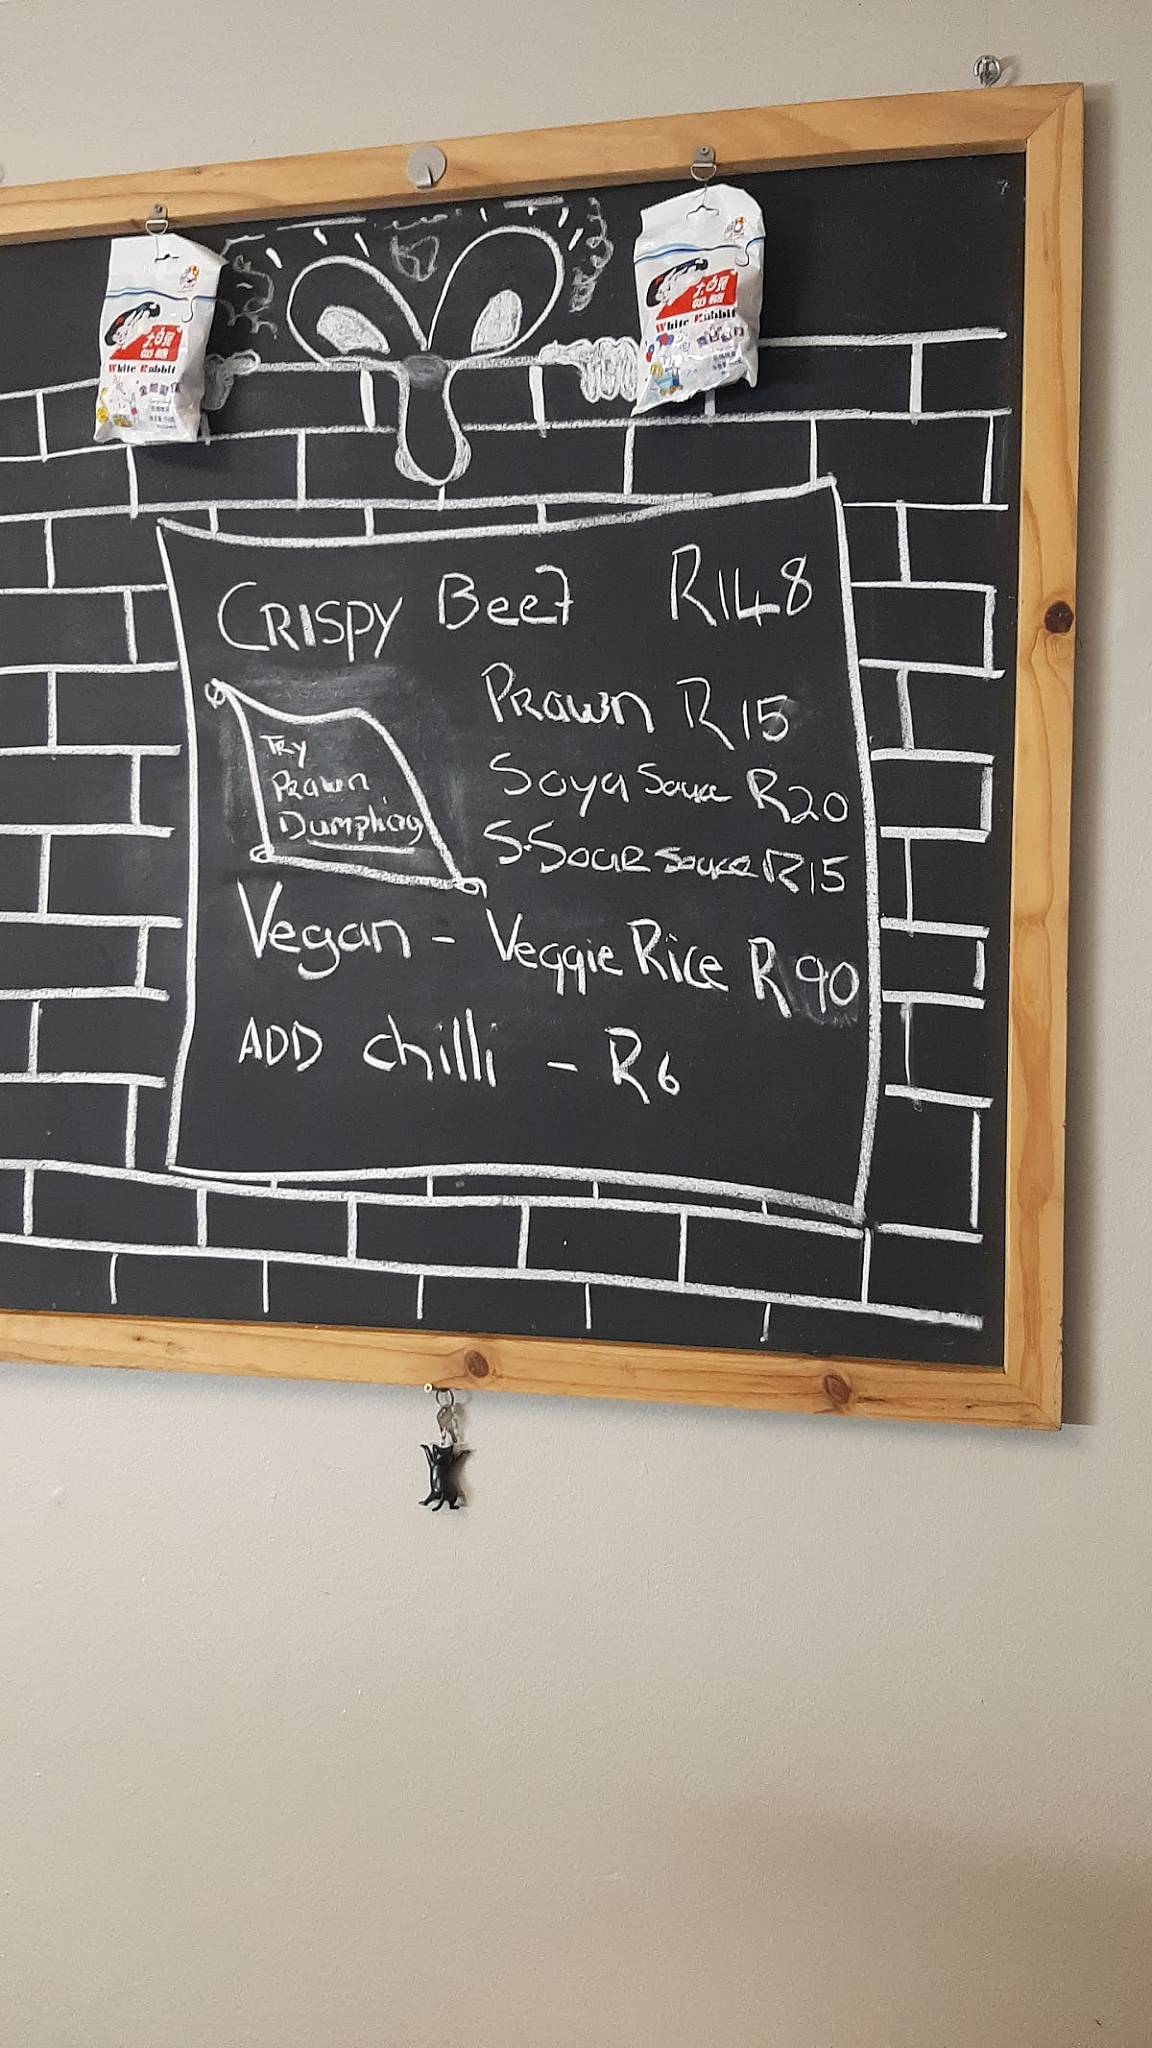 大白兔
奶糖
White Rabbit
大白兔
奶糖
White Rabbit
CRISPY Beef R148
Prawn R15
Try
Prawn
Dumpling
Soya Sauce R20
S.Sour sauce R15
Vegan - Veggie Rice R90
ADD chilli - R6